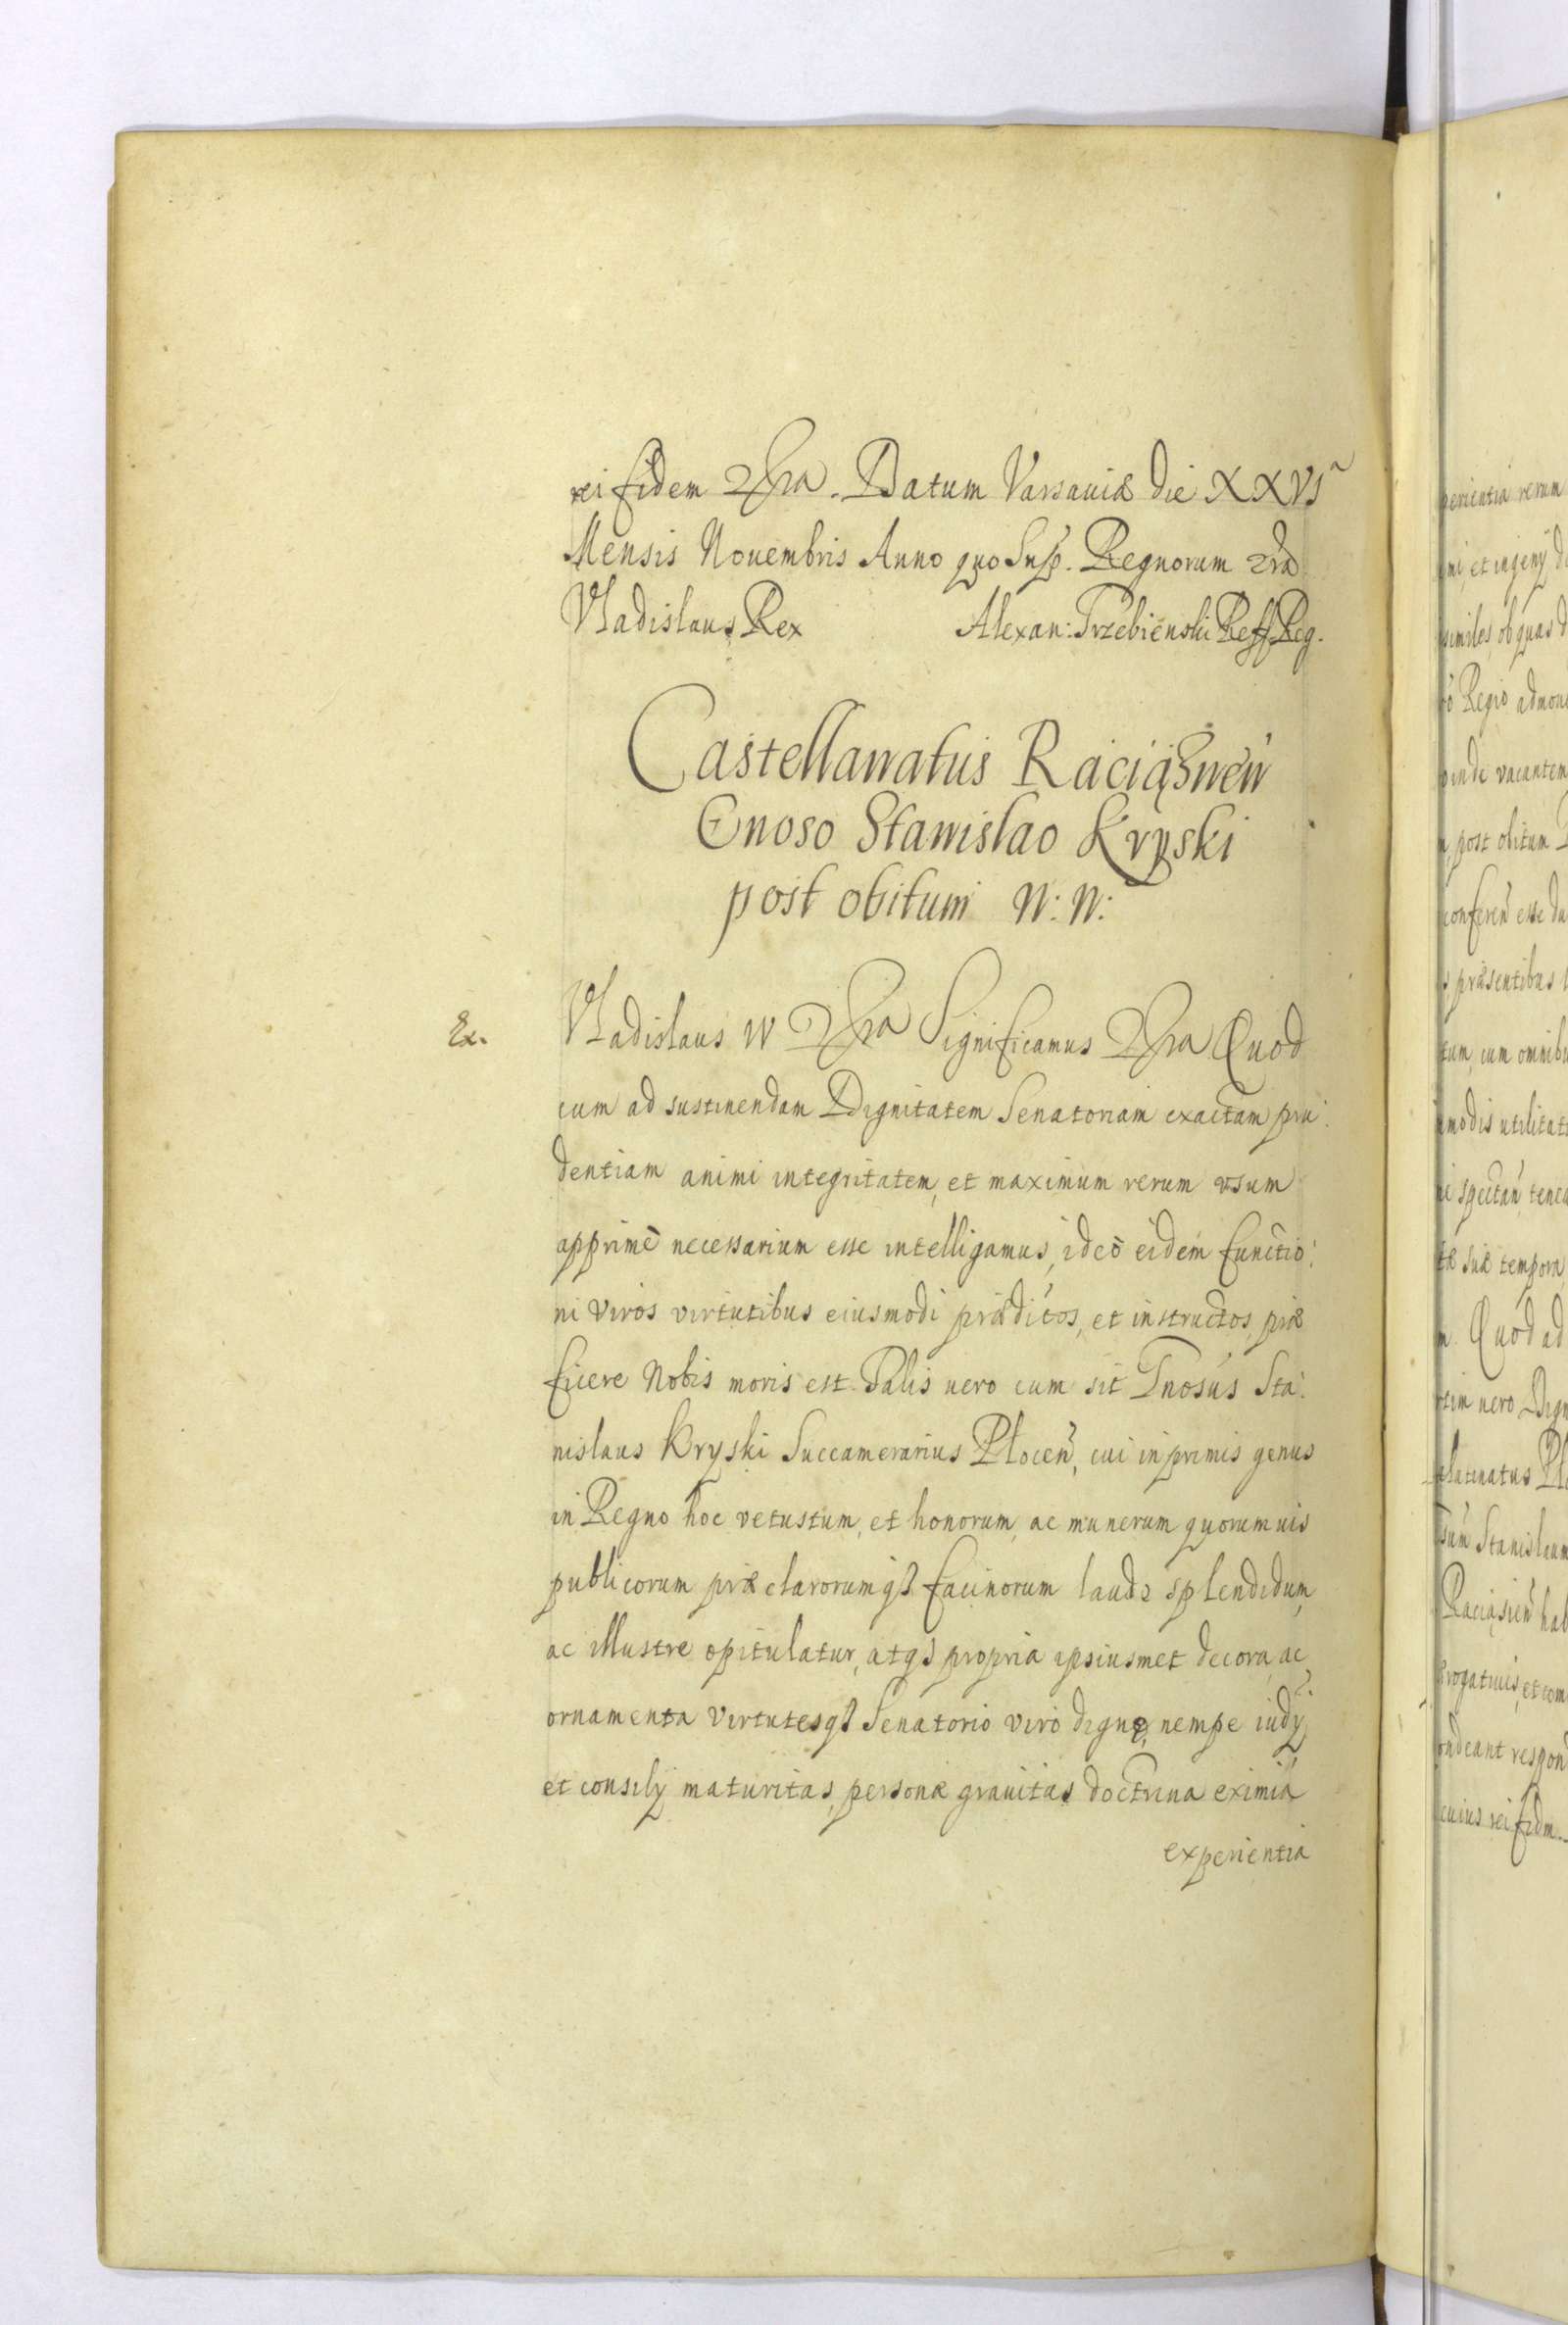 rei fidem Datum Varsauiæ die XXVI
Mensis Nouembris Anno quo Sup. Regnorum
Vladislaus Rex Alexan: Trzebienski Reff Reg.
Castellanatus Raciązneñ
Gnoso Stanislao Kryski
post obitum N: N:
Ex.
Vladislaus IV Significamus Quod
cum ad sustinendam Dignitatem Senatoriam exactam pru:
dentiam animi integritatem, et maximum rerum vsum
apprimè necessarium esse intelligamus, ideò eidem functio:
ni viros virtutibus eiusmodi præditos, et instructos præ
ficere Nobis moris est. Talis uero cum sit Gnosus Sta:
nislaus Kryski Succamerarius Płoceñ, cui inprimis genus
in Regno hoc vetustum, et honorum, ac munerum quorumuis
publicorum præclarorumq3 facinorum laude splendidum,
ac illustre opitulatur, atq3 propria ipsiusmet decora, ac
ornamenta virtutesq3 Senatorio viro dignę, nempe iudÿ
et consilÿ maturitas, personæ grauitas doctrina eximia
experientia
perientia rerum
ni, et ingenÿ
similes, ob quas
Regio
vacantem
post obitum
confereñ esse
præsentibus
cum omnibu
modis utilitat
spectañ
suæ tempora
Quòd ad
uero
Stanislaum
Raciąsień
rogatiuis, et com
cuius rei fidm.